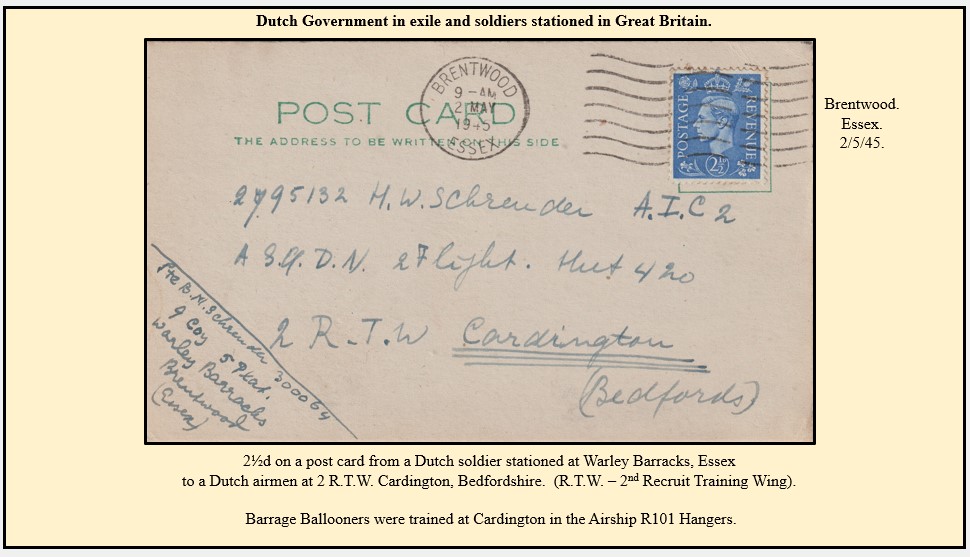 Dutch Government in exile and soldiers stationed in Great Britain.
BRENTWOOD
9 - AM
2 MAY
1945
ESSEX
POST CARD
THE ADDRESS TO BE WRITTEN ON THIS SIDE
POSTAGE
REVENUE
2½D
Brentwood.
Essex.
2/5/45.
2795132 H.W. Schreuder A.I.C 2
A D.N. 2 Flight. Hut 420
2 R.T.W Cardington
(Bedfords)
Pte B.N. Schreuder 300064
9 Coy
Warley Barracks
Brentwood
(Essex)
2½d on a post card from a Dutch soldier stationed at Warley Barracks, Essex
to a Dutch airmen at 2 R.T.W. Cardington, Bedfordshire. (R.T.W. – 2nd Recruit Training Wing).
Barrage Ballooners were trained at Cardington in the Airship R101 Hangers.